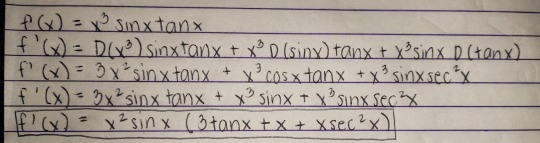 f'(x) = x³ sinx tanx
f'(x) = D(x³) sinx tanx + x³ D(sinx) tanx + x³ sinx D(tanx)
f'(x) = 3x² sinx tanx + x³ cosx tanx + x³ sinx sec²x
f'(x) = 3x² sinx tanx + x³ sinx + x³ sinx sec²x
f'(x) = x² sinx (3tanx + x + x sec²x)